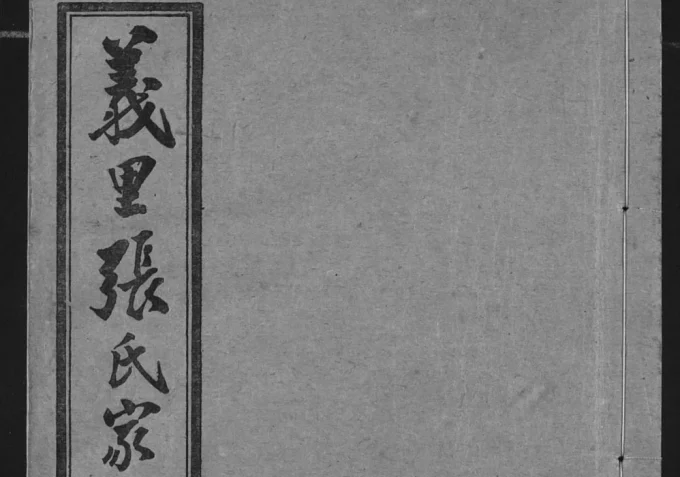 義里張氏家